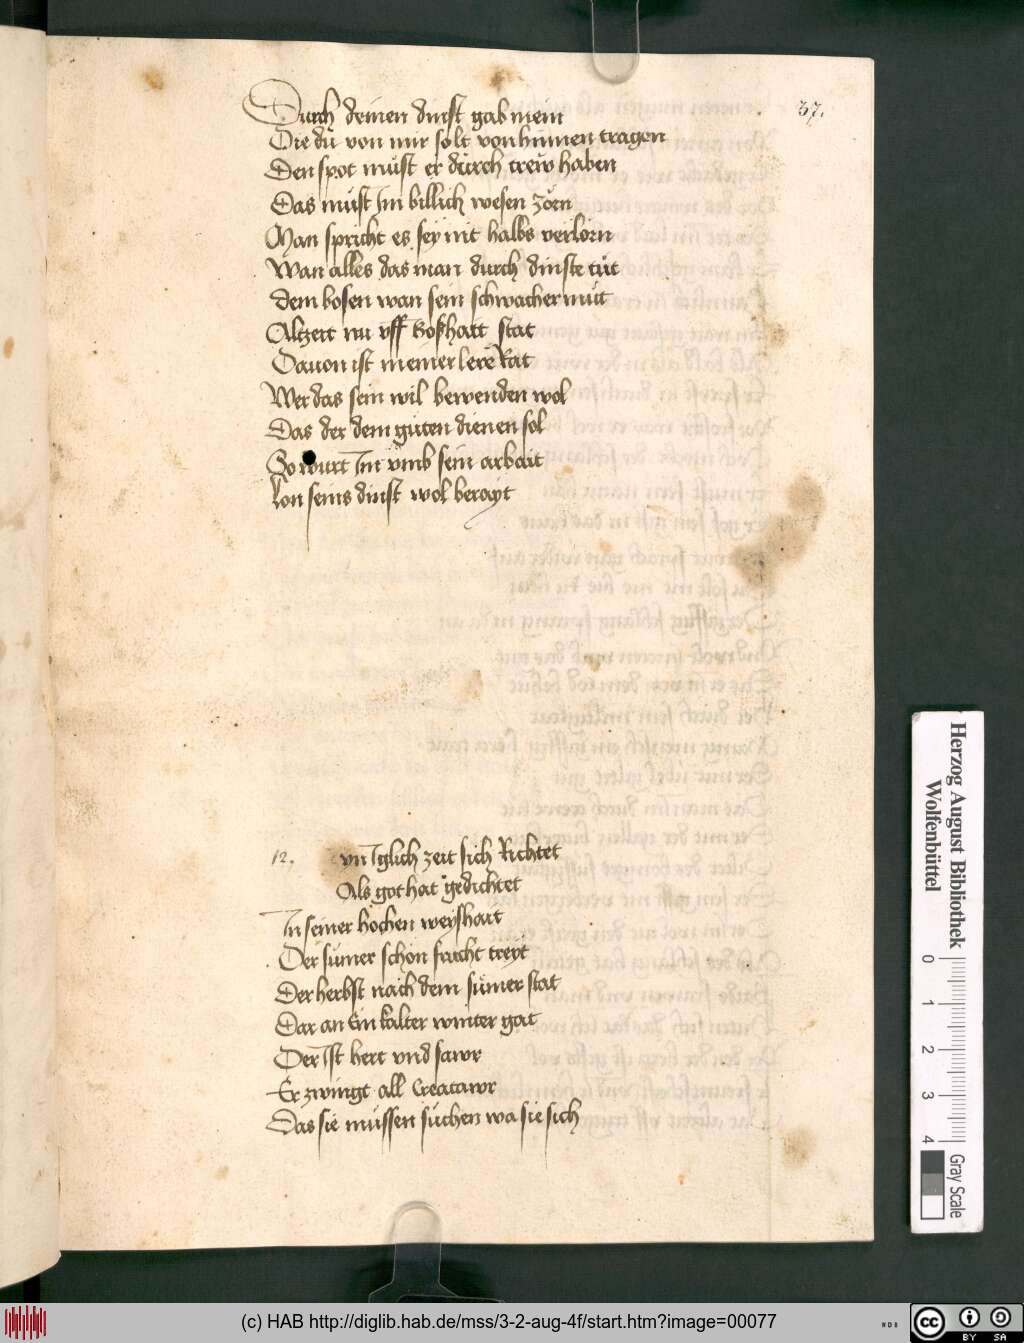 37.
Durch deinen dinst gab mein
Die du von mir solt von hinnen tragen
Den spot must er durch trew haben
Das must Im billich wesen zorn
Man spricht es sey nit halbs verlorn
Wan alles das man durch dinste tut
dem bosen wan sein schwacher mut
Alzeit nu vff boßhait stat
Dauon ist meiner lere Rat
Wer das sein wil bewenden wol
Das der dem guten dienen sol
So wurt Im vmb sein arbait
lon seins dinst wol berayt
12.
yn Iglich zeit sich Richtet
Als got hat gedichtet
In seiner hochen weyshait
Der sumer schon frucht treyt
Der herbst nach dem sumer stat
Dar an Ein kalter winter gat
Der Ist hert vnd sawr
Er zwingt all Creatawr
Das sie mussen suchen wa sie sich
Herzog August Bibliothek
Wolfenbüttel
0 1 2 3 4
Gray Scale
(c) HAB http://diglib.hab.de/mss/3-2-aug-4f/start.htm?image=00077
cc
BY SA